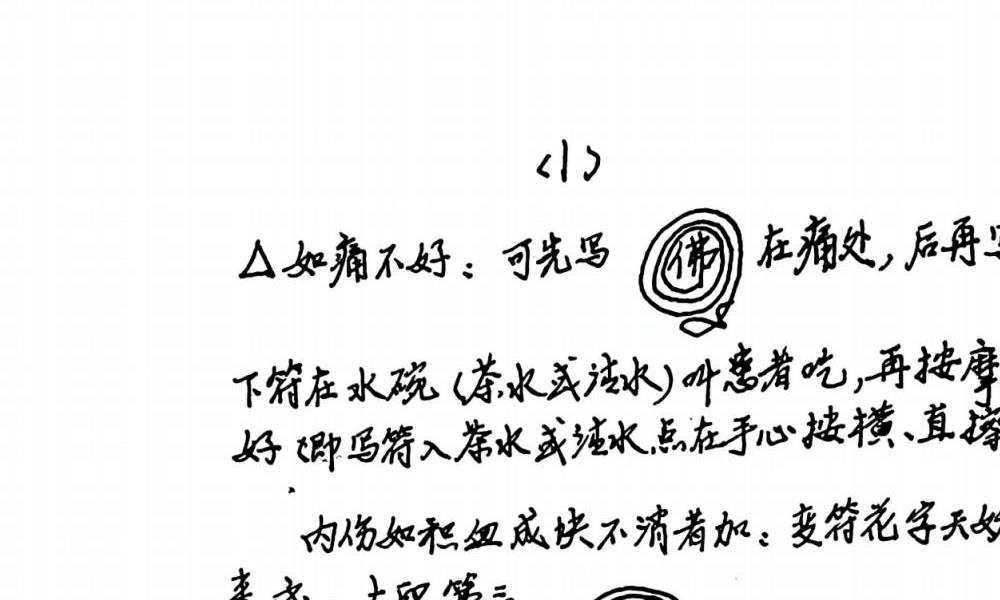 <1>
△如痛不好：可先写 佛 在痛处，后再写
下符在水碗（茶水或清水）叫患者吃，再按摩
好（即写符入茶水或清水点在手心按横、直擦
内伤如积血成块不消者加：变符花字天